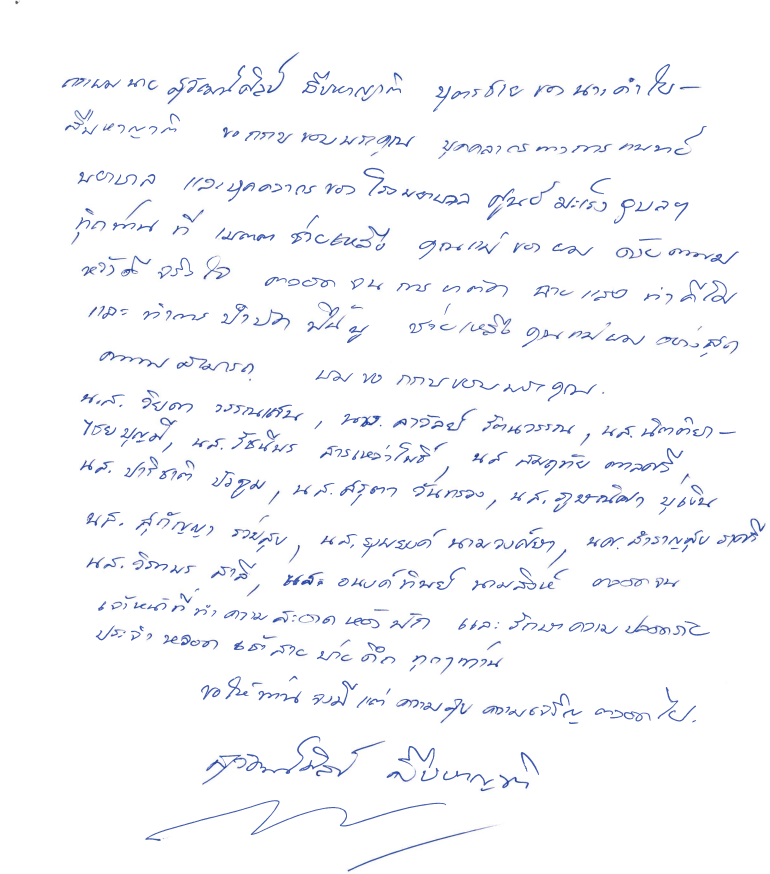 กระผม นาย สุวัฒน์ศิลป์ สืบหาญาติ บุตรชาย ของ นางคำใบ –
สืบหาญาติ ขอ กราบ ขอบพระคุณ บุคคลากร ทางการ แพทย์
พยาบาล และบุคลากร ของ โรงพยาบาล ศูนย์ มะเร็ง อุบลฯ
ทุกท่าน ที่ เมตตา ช่วยเหลือ คุณแม่ ของ ผม ด้วย ความ
หวังดี จริงใจ ตลอด จน การ ฉายแสง ทำคีโม
และ ทำการ บำบัด ฟื้นฟู ช่วยเหลือ คุณแม่ผม อย่างสุด
ความ สามารถ ผม ขอ กราบขอบพระคุณ.
น.ส. วิยดา วรรณเสน , ลาวัลย์ รัตนวรรณ , นส. นิตติยา –
ไชยบุญมี , น.ส. รัชนีพร สารเหล่าโพธิ์ , นส สมฤทัย ตาลศรี ,
นส. ปาริชาติ บัวชุม , น.ส. ศรุตา จันทรวง , น.ส.
นส. สุกัญญา รายสุข , น.ส. นามวงศ์ษา , สำราญสุข
น.ส. วิราพร สาลี , นส. อนงค์ทิพย์ นามสิงห์ ตลอดจน
เจ้าหน้าที่ ทำ ความ สะอาด หอพัก และ รักษาความ ปลอดภัย
ประจำ เช้า สาย บ่าย ดึก ทุกๆท่าน
ขอให้ ท่าน จงมี แต่ ความสุข ความเจริญ ตลอด ไป.
สุวัฒน์ศิลป์ สืบหาญาติ